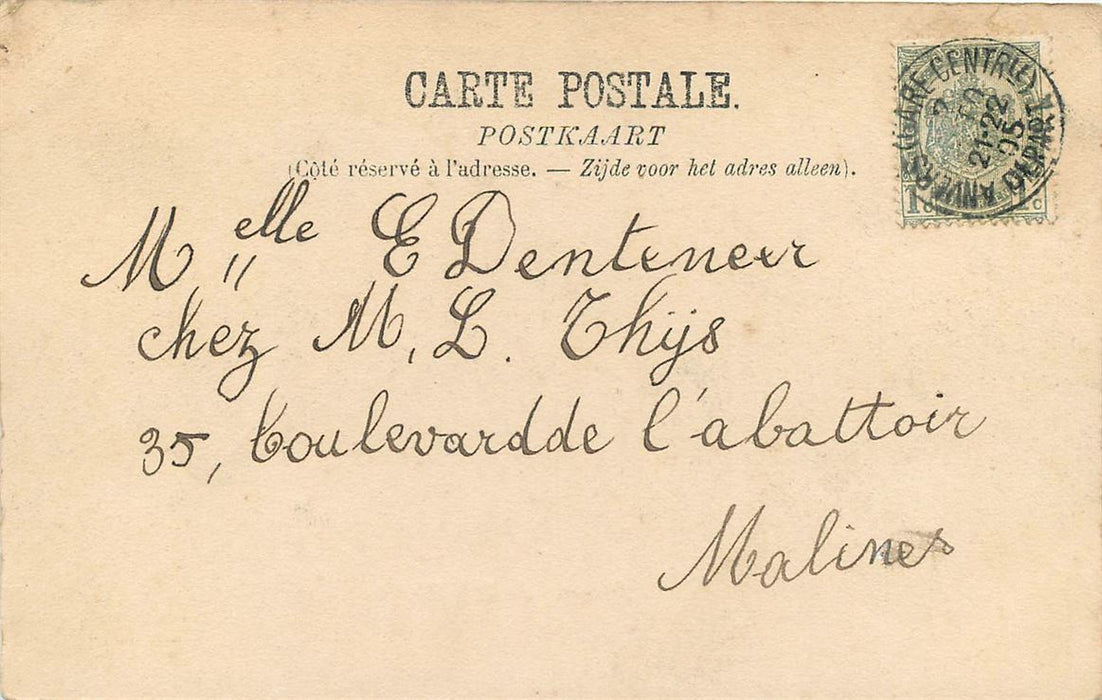 CARTE POSTALE.
POSTKAART
(Côté réservé à l'adresse. — Zijde voor het adres alleen).
ANVERS (GARE CENTRLE) DEPART
21-22
05
1 c 1 c
Melle E Denteneer
chez M. L. Thijs
35, boulevardde l'abattoir
Malines